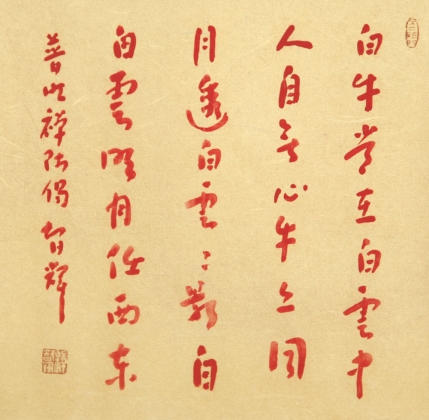 白牛常在白雲中
人自无心牛亦同
月透白雲雲影白
白雲明月任西东
普明禅师偈 智辉